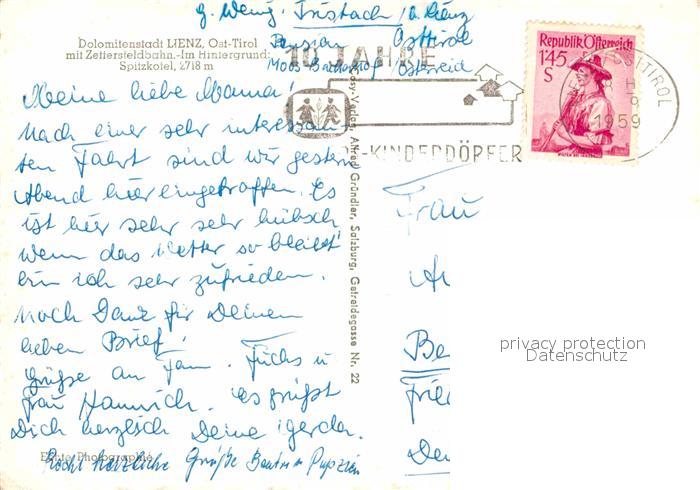 g. Wenig, Tristach / b. Lienz
Pension Osttirol
Moos-Bacherhof / Österreich
Dolomitenstadt LIENZ, Ost-Tirol
mit Zettersfeldbahn.-Im Hintergrund:
Spitzkofel, 2718 m
10 JAHRE
-KINDERDÖRFER
OSTTIROL
1959
Republik Österreich
1'45
S
Meine liebe Mama!
Nach einer sehr interessan-
ten Fahrt sind wir gestern
Abend hier eingetroffen. Es
ist hier sehr sehr hübsch
wenn das Wetter so bleibt
bin ich sehr zufrieden.
Noch Dank für Deinen
lieben Brief!
Grüße an Fam. Fuchs u
Frau Hannich. es grüßt
Dich herzlich Deine Gerda.
Recht herzliche Grüße
Echte Photographie
Cosy-Verlag, Alfred Gründler, Salzburg, Getreidegasse Nr. 22
Frau
An
Be
Frie
De
privacy protection
Datenschutz